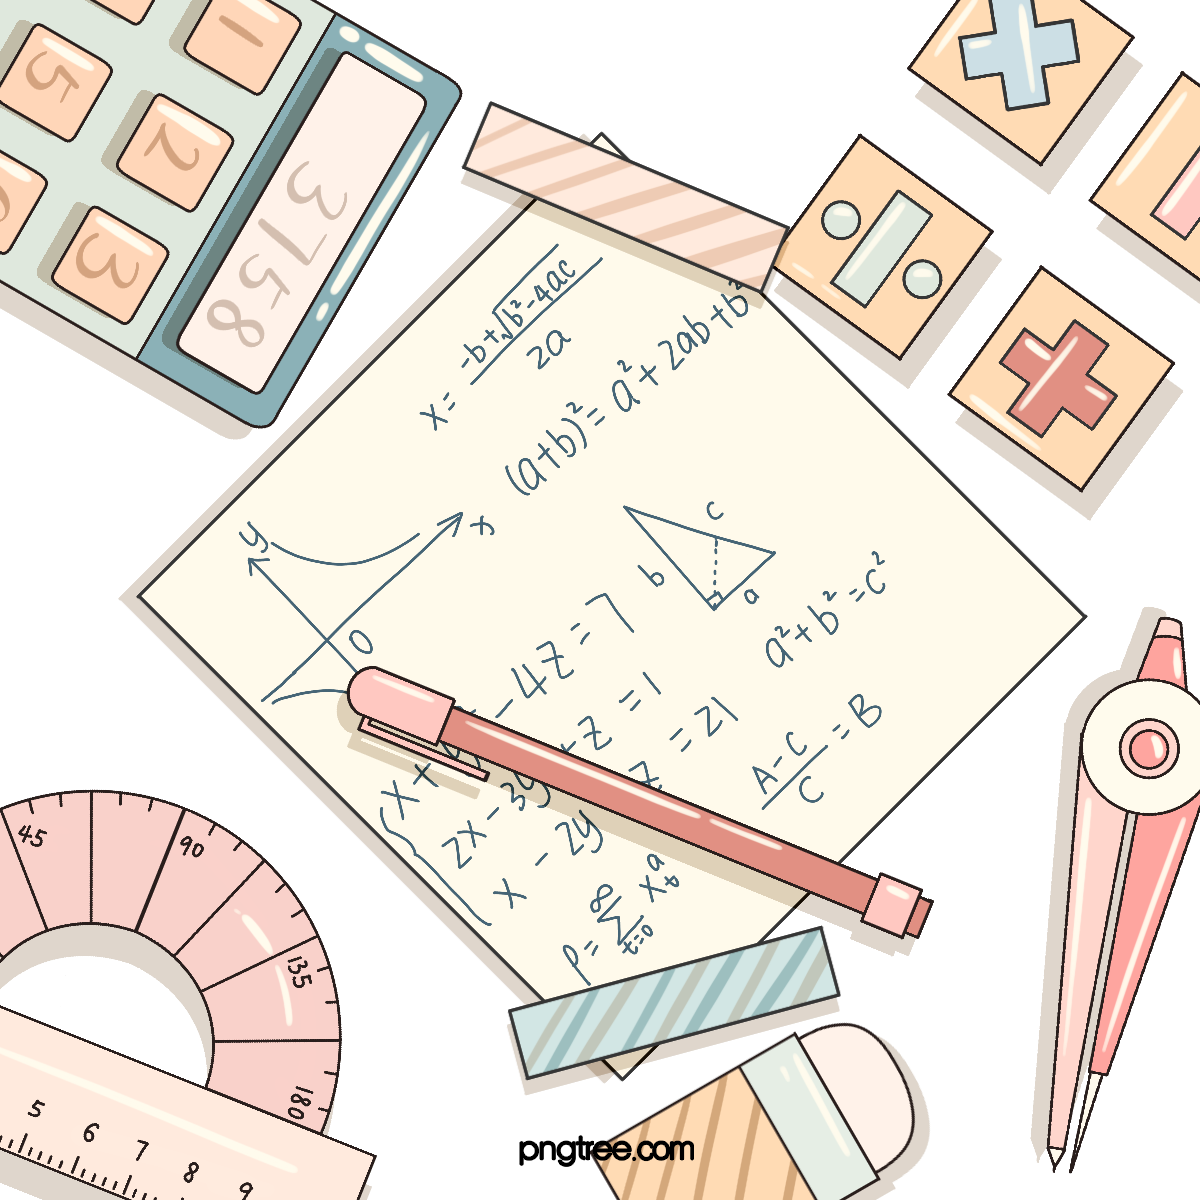 1
5
2
3
3758
x = -b+√b²-4ac
2a
(a+b)² = a² + 2ab + b²
y
x
0
c
b
a
a² + b² = c²
- 4z = 7
2x - 3y + z = 1
x - 2y z = 21
A - C
C
= B
p = ∞ Σ t=0 x a t
45
90
135
180
5 6 7 8 9
pngtree.com